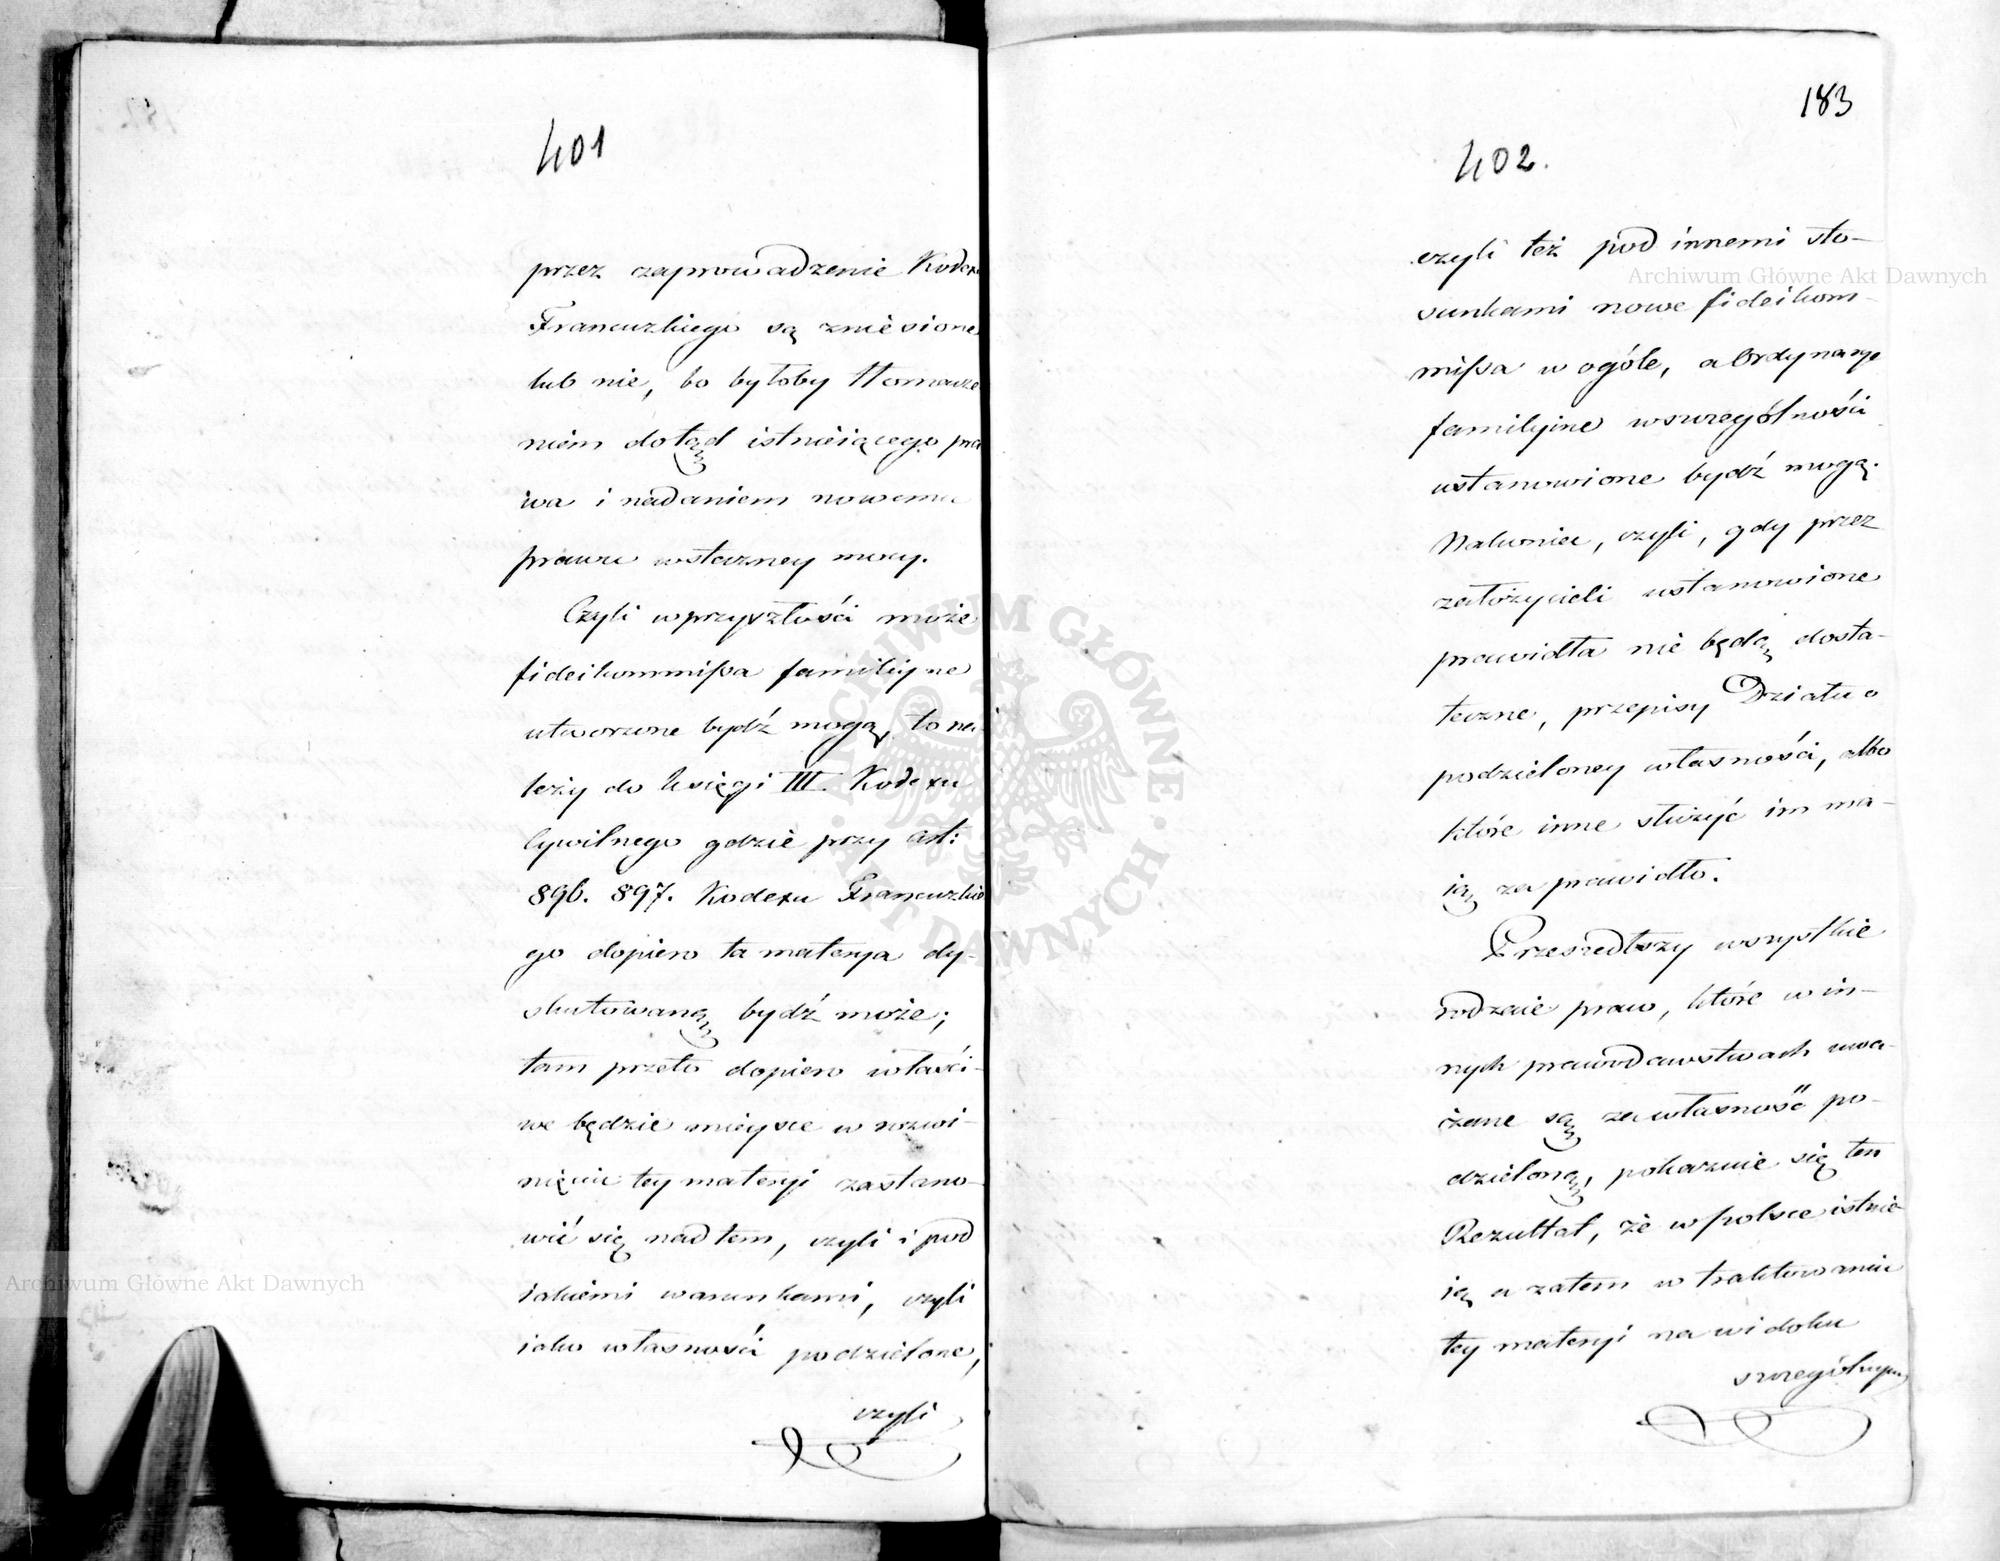 401
przez zaprowadzenie Kodexu
Francuzkiego są zniesione
lub nie, bo byłoby tłomacze
niem dotąd istnieiącego pra
wa i nadaniem nowemu
prawu wsteczney mocy.
Czyli w przyszłości może
fideikommißa familiyne
utworzone bydź mogą, to na
leży do księgi III. Kodexu
Cywilnego gdzie przy art:
896. 897. Kodexu Francuzkie
go dopiero ta materya dy-
skutowaną bydź może;
tam przeto dopiero właści-
we będzie mieysce w rozwi-
nięciu tey materyi zastano-
wić się nad tem, czyli i pod
iakiemi warunkami, czyli
iako własności podzielone,
czyli
183
402.
czyli też pod innemi sto-
sunkami nowe fideikom-
mißa w ogóle, a Ordynacye
familijne w szczególności
ustanowione bydź mogą.
Nakoniec, czyli, gdy przez
założycieli ustanowione
prawidła nie będą dosta-
teczne, przepisy Działu o
podzieloney własności, albo
które inne służyć im ma-
ią za prawidło.
Przeszedłszy wszystkie
rodzaie praw, które w in-
nych prawodawstwach uwa-
żane są za własność po-
dzieloną, pokazuie się ten
Rezultat, że w Polsce istnie
ią a zatem w traktowaniu
tey materyi na widoku
szczególnym
Archiwum Główne Akt Dawnych
Archiwum Główne Akt Dawnych
ARCHIWUM GŁÓWNE · AKT DAWNYCH ·